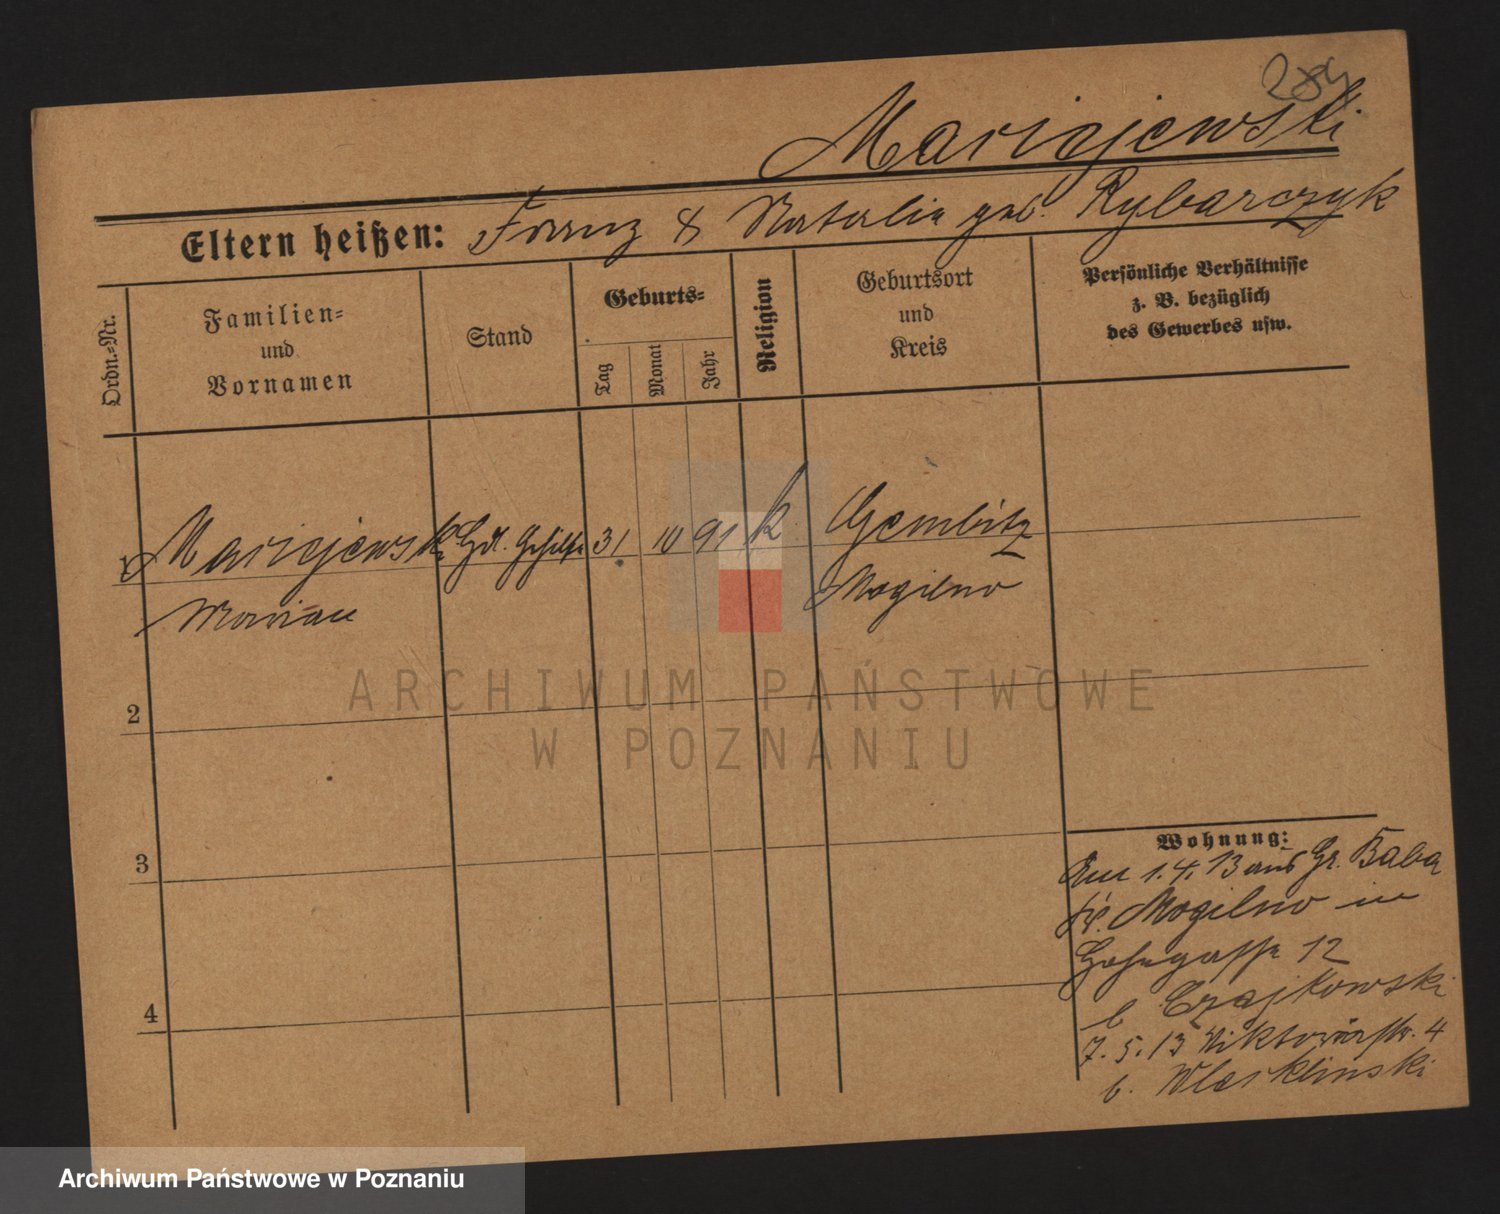 284
Maricjewski
Eltern heißen: Franz & Natalie geb. Rybarczyk
Ordn.-Nr.
Familien-
und
Vornamen
Stand
Geburts-
Tag
Monat
Jahr
Religion
Geburtsort
und
Kreis
Persönliche Verhältnisse
z. B. bezüglich
des Gewerbes usw.
1 Maricjewski Hdl. Gehilfe 31 10 91 k Gembitz
Marian Mogilno
2
3
4
Wohnung:
Am 1.4.13 aus Gr. Baba
Kr. Mogilno in
12
b Czajkowski
7.5.13 Viktoriastr. 4
b.
ARCHIWUM PAŃSTWOWE
W POZNANIU
Archiwum Państwowe w Poznaniu